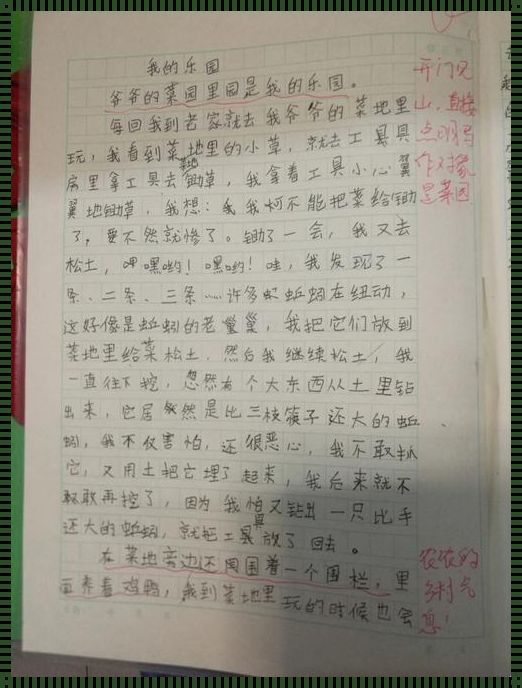 我的乐园
爷爷的菜园里园是我的乐园。
每回我到老家就去我爷爷的菜地里
玩，我看到菜地里的小草，就去工具具
房里拿工具去锄草，我拿着工具小心翼
翼地锄草，我想：我我可不能把菜给锄
了，要不然就惨了。锄了一会，我又去
松土，呷嘿哟！嘿哟！哇，我发现了一
条、二条、三条……许多蚯蚓在纽动，
这好像是蚯蚓的老巢，我把它们放到
菜地里给菜松土，然后我继续松土，我
一直往下挖，忽然有个大东西从土里钻
出来，它居然是比三枝筷子还大的蚯
蚓，我不仅害怕，还很恶心，我不敢抓
它，又用土把它埋了起来，我后来就不
敢再挖了，因为我怕又钻出一只比手
还大的蚯蚓，就把工具放了回去。
在菜地旁边还围着一个围栏，里
面养着鸡鸭，我到菜地里玩的时候也会
开门见
山，直接
点明写
作对象
是菜园
浓浓的
乡村气
息！